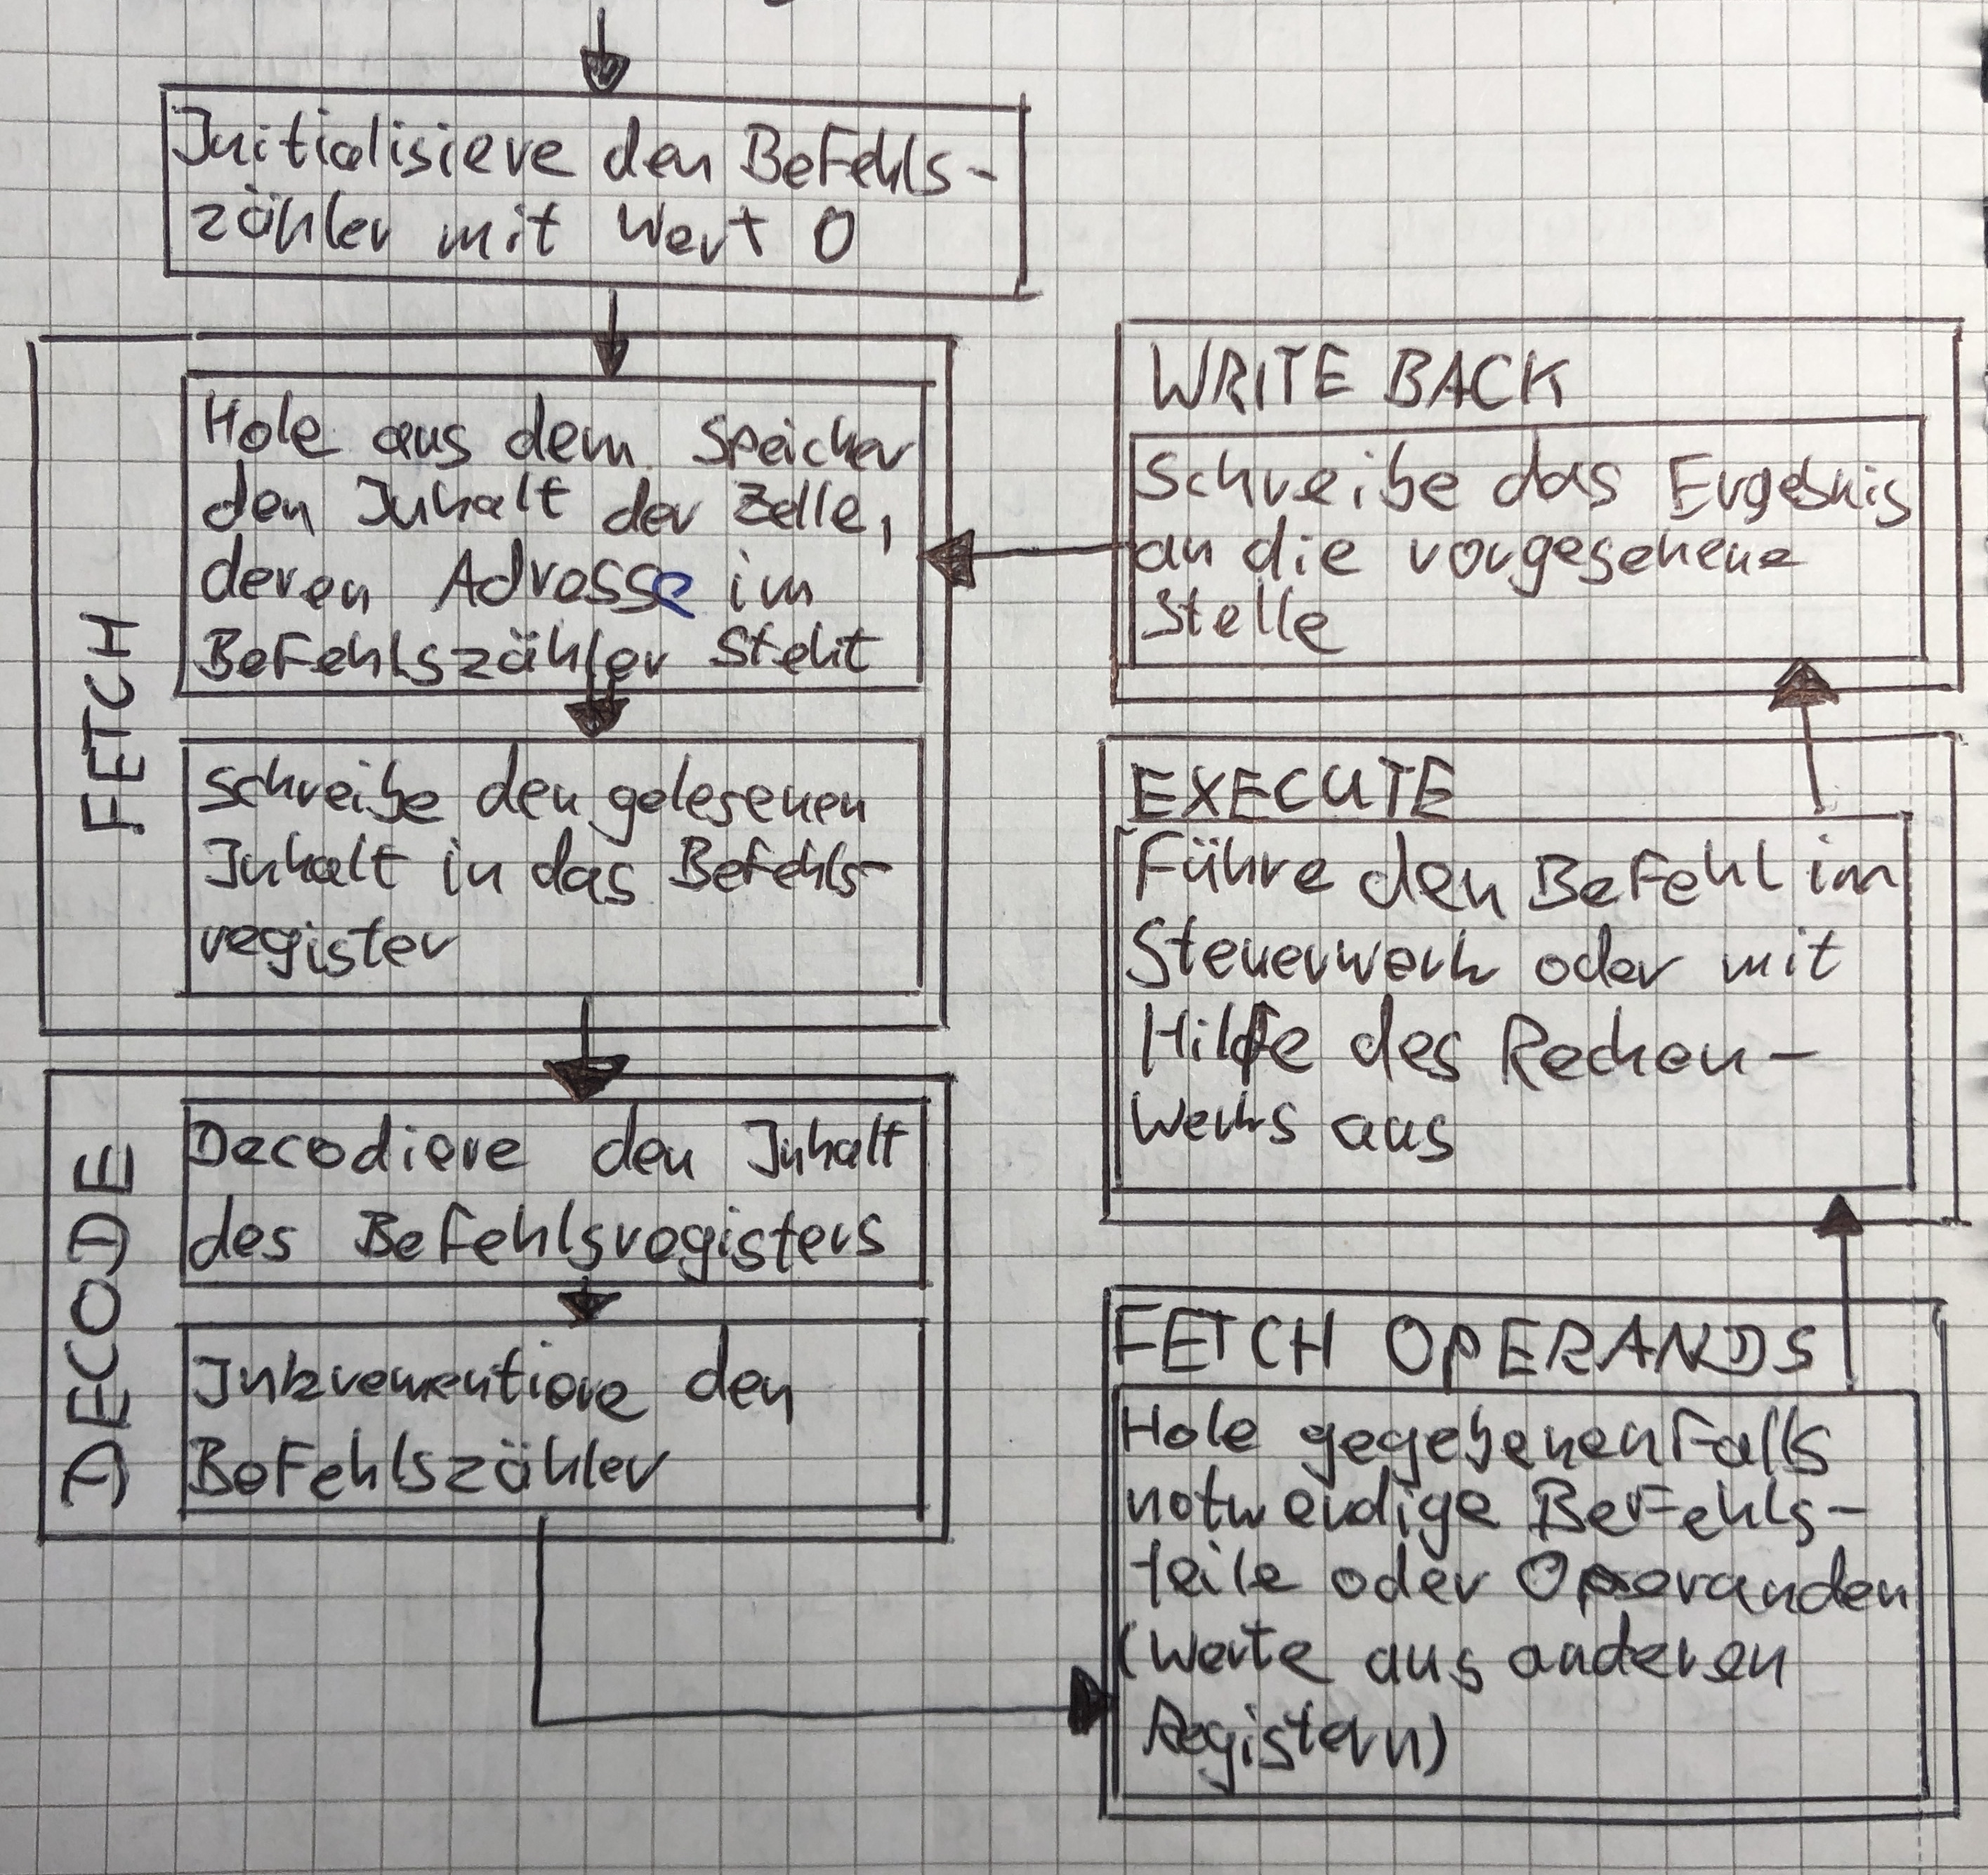 Initialisiere den Befehls-
zähler mit Wert 0
FETCH
Hole aus dem Speicher
den Inhalt der Zelle,
deren Adresse im
Befehlszähler steht
Schreibe den gelesenen
Inhalt in das Befehls-
register
DECODE
Decodiere den Inhalt
des Befehlsregisters
Inkrementiere den
Befehlszähler
FETCH OPERANDS
Hole gegebenenfalls
notwendige Befehls-
teile oder Operanden
(Werte aus anderen
Registern)
EXECUTE
Führe den Befehl im
Steuerwerk oder mit
Hilfe des Rechen-
werks aus
WRITE BACK
Schreibe das Ergebnis
an die vorgesehene
Stelle